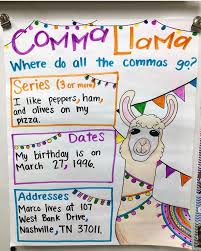 Comma Llama
Where do all the commas go?
Series (3 or more)
I like peppers, ham,
and olives on my
pizza.
Dates
My birthday is on
March 27, 1996.
Addresses
Marco lives at 107
West Bank Drive,
Nashville, TN 37011.